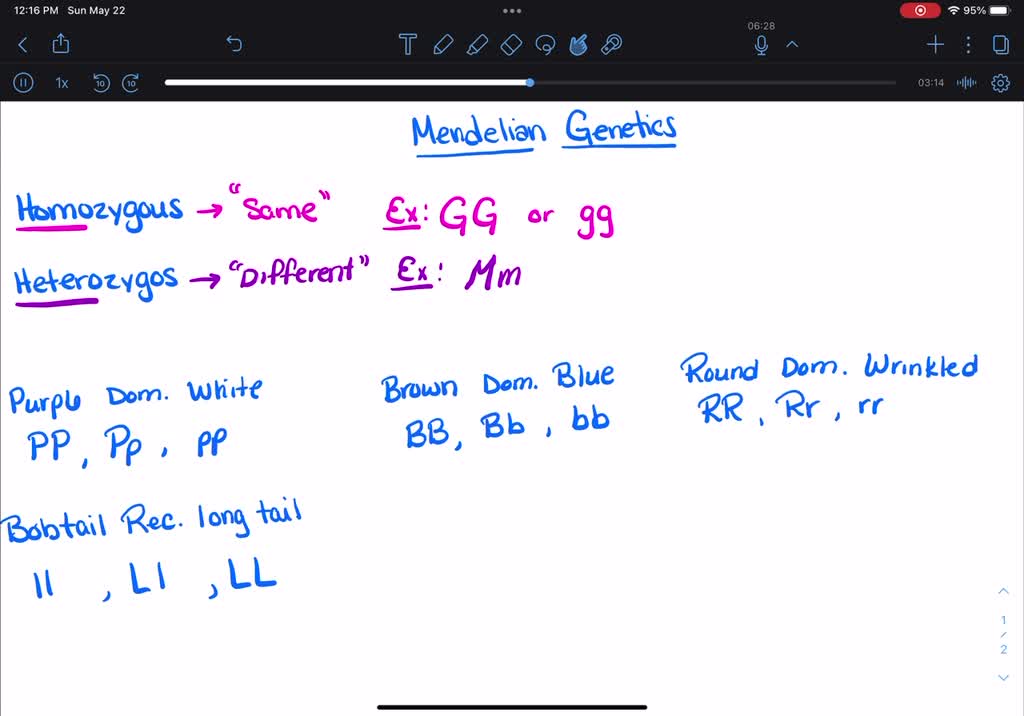 12:16 PM Sun May 22
95%
06:28
1x
10 10
03:14
Mendelian Genetics
Homozygous → "Same" Ex: GG or gg
Heterozygos → "Different" Ex: Mm
Purple Dom. White
PP, Pp, pp
Brown Dom. Blue
BB, Bb, bb
Round Dom. Wrinkled
RR, Rr, rr
Bobtail Rec. long tail
ll, Ll, LL
1
/
2